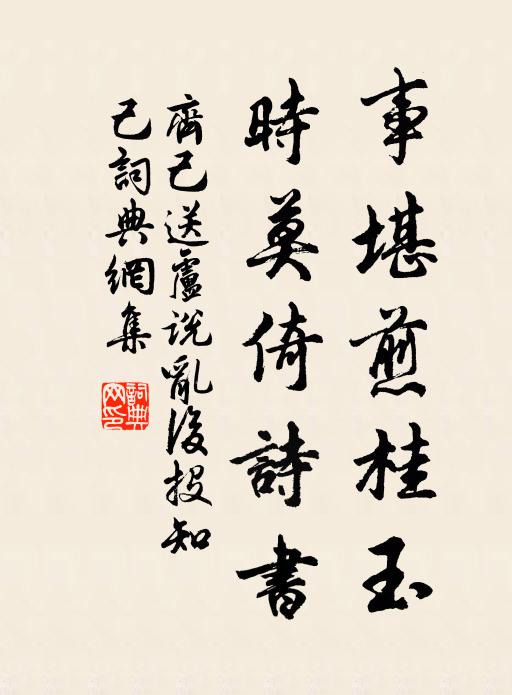 事堪煎桂玉
時莫倚詩書
齊己送盧説亂後投知
己詞典網集
詞典
网印